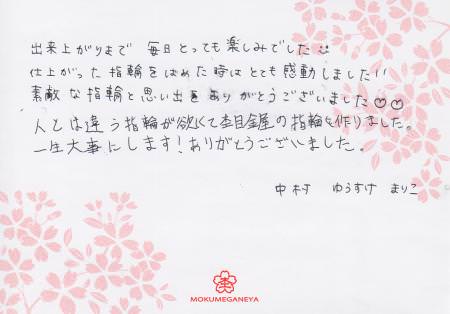 出来上がりまで 毎日とっても楽しみでした
仕上がった指輪をはめた時はとても感動しました!!
素敵な指輪と思い出をありがとうございました♡♡
人とは違う指輪が欲しくて杢目金屋の指輪を作りました。
一生大事にします!ありがとうございました。
中村 ゆうすけ まりこ
MOKUMEGANEYA